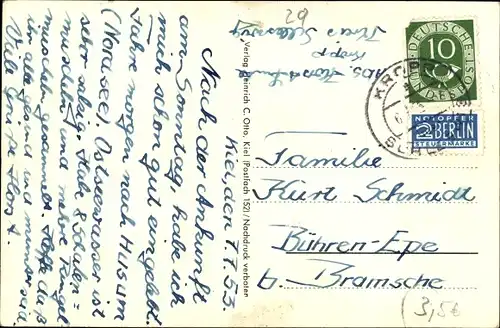 Kiel, den 7.7.53.
Nach der Ankunft
am Sonntag, habe ich
mich schon gut eingelebt.
Fahre morgen nach Husum
(Nordsee). Ostseewasser ist
sehr salzig. Habe 8 Seesten-
muscheln und mehre
muscheln gesammelt. Hoffe daß
ihr alle gesund und munter seid.
Viele Grüße Horst.
Verlag Heinrich C. Otto, Kiel (Postfach 152) / Nachdruck verboten
29
Abs. Horst
Kropp
Kreis Schleswig
DEUTSCHE POST
10
KROPP
NOTOPFER
2 BERLIN
STEUERMARKE
Familie
Kurt Schmidt
Bühren-Epe
b. Bramsche
3,5€